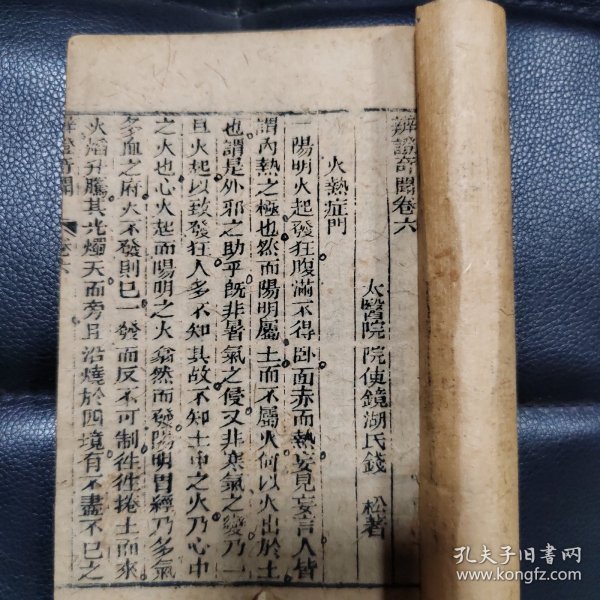 辨證奇聞卷六
太醫院院使鏡湖氏錢 松著
火熱症門
一陽明火起發狂腹滿不得臥面赤而熱妄見妄言人皆
謂內熱之極也然而陽明屬土而不屬火何以火出於土
也謂是外邪之助乎既非暑氣之侵又非寒氣之發乃一
旦火起以致發狂人多不知其故不知土中之火乃心中
之火也心火起而陽明之火翕然而發陽明胃經乃多氣
多血之府火不發則已一發而反不可制徃徃捲土而來
火焰升騰其光燭天而旁且沿燒於四境有不盡不已之
辨證奇聞 卷六
孔夫子旧书网
www.kongfz.com